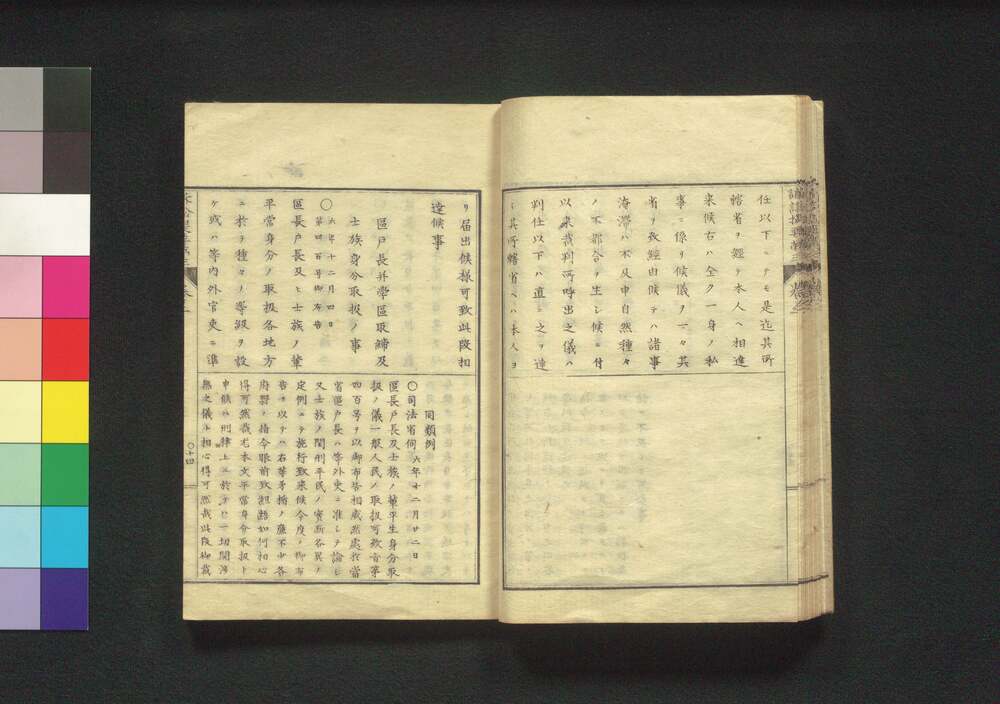 任以下ニテモ是迄其所
轄省ヲ經テ本人ヘ相達
来候右ハ全ク一身ノ私
事ニ係リ候儀ヲ一々其
省ヲ致經由候テハ諸事
淹滞ハ不及申自然種々
ノ不都合ヲ生シ候ニ付
以来裁判所呼出之儀ハ
判任以下ハ直ニ之ヲ達
シ其所轄省ヘハ本人ヨ
リ届出候様可致此段相
達候事
區戸長并學區取締及
士族身分取扱ノ事
〇六年十二月四日
第四百号御布告
區長戸長及ヒ士族ノ輩
平常身分ノ取扱各地方
ニ於テ種々ノ等級ヲ設
ケ或ハ等内外官吏ニ準
同類例
〇司法省伺六年十二月廿二日
區長戸長及士族ノ輩平生身分取
扱ノ儀一般人民ノ取扱可致旨第
四百号ヲ以御布告相成然處我當
省區戸長ハ等外吏ニ准シテ論シ
又士族ノ閏刑平民ノ實断各異ノ
定例ニテ施行致来候今度ノ御布
告ヲ以テハ右等矛楯ノ廉不少各
府縣ノ指令眼前致差閊如何相心
得可然哉尤本文平常身分取扱ト
申候ハ刑律上ニ於テハ一切関渉
無之儀ト相心得可然哉此段御裁
〇十四